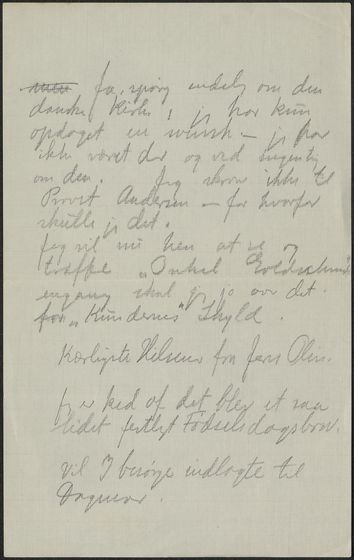 for, spørg endelig om den
danske Kirke, jeg har kun
opdaget en svensk – jeg har
ikke været der og ved ingenting
om den. Jeg skrev ikke til
Provst Andersen – for hvorfor
skulde jeg det.
Jeg vil nu hen at se og
træffe "Onkel Goldschmidt"
engang skal jeg jo over det.
for "Kundernes" Skyld.
Kærligste Hilsener fra Jens Olin.
Jeg er ked af det blev et saa
lidet festligt Fødselsdagsbrev.
Vil I besørge indlagte til
Dagmar.